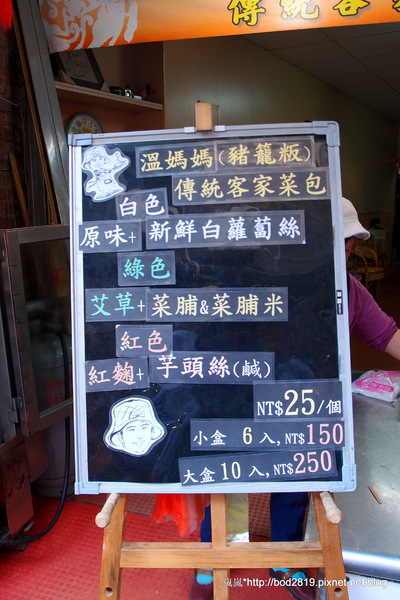 傳統客
溫媽媽(豬籠粄)
傳統客家菜包
白色
原味+新鮮白蘿蔔絲
綠色
艾草+菜脯&菜脯米
紅色
紅麴+芋頭絲(鹹)
NT$25/個
小盒 6入,NT$150
大盒10入,NT$250
嵐嵐*http://bod2819.pixnet.net/blog